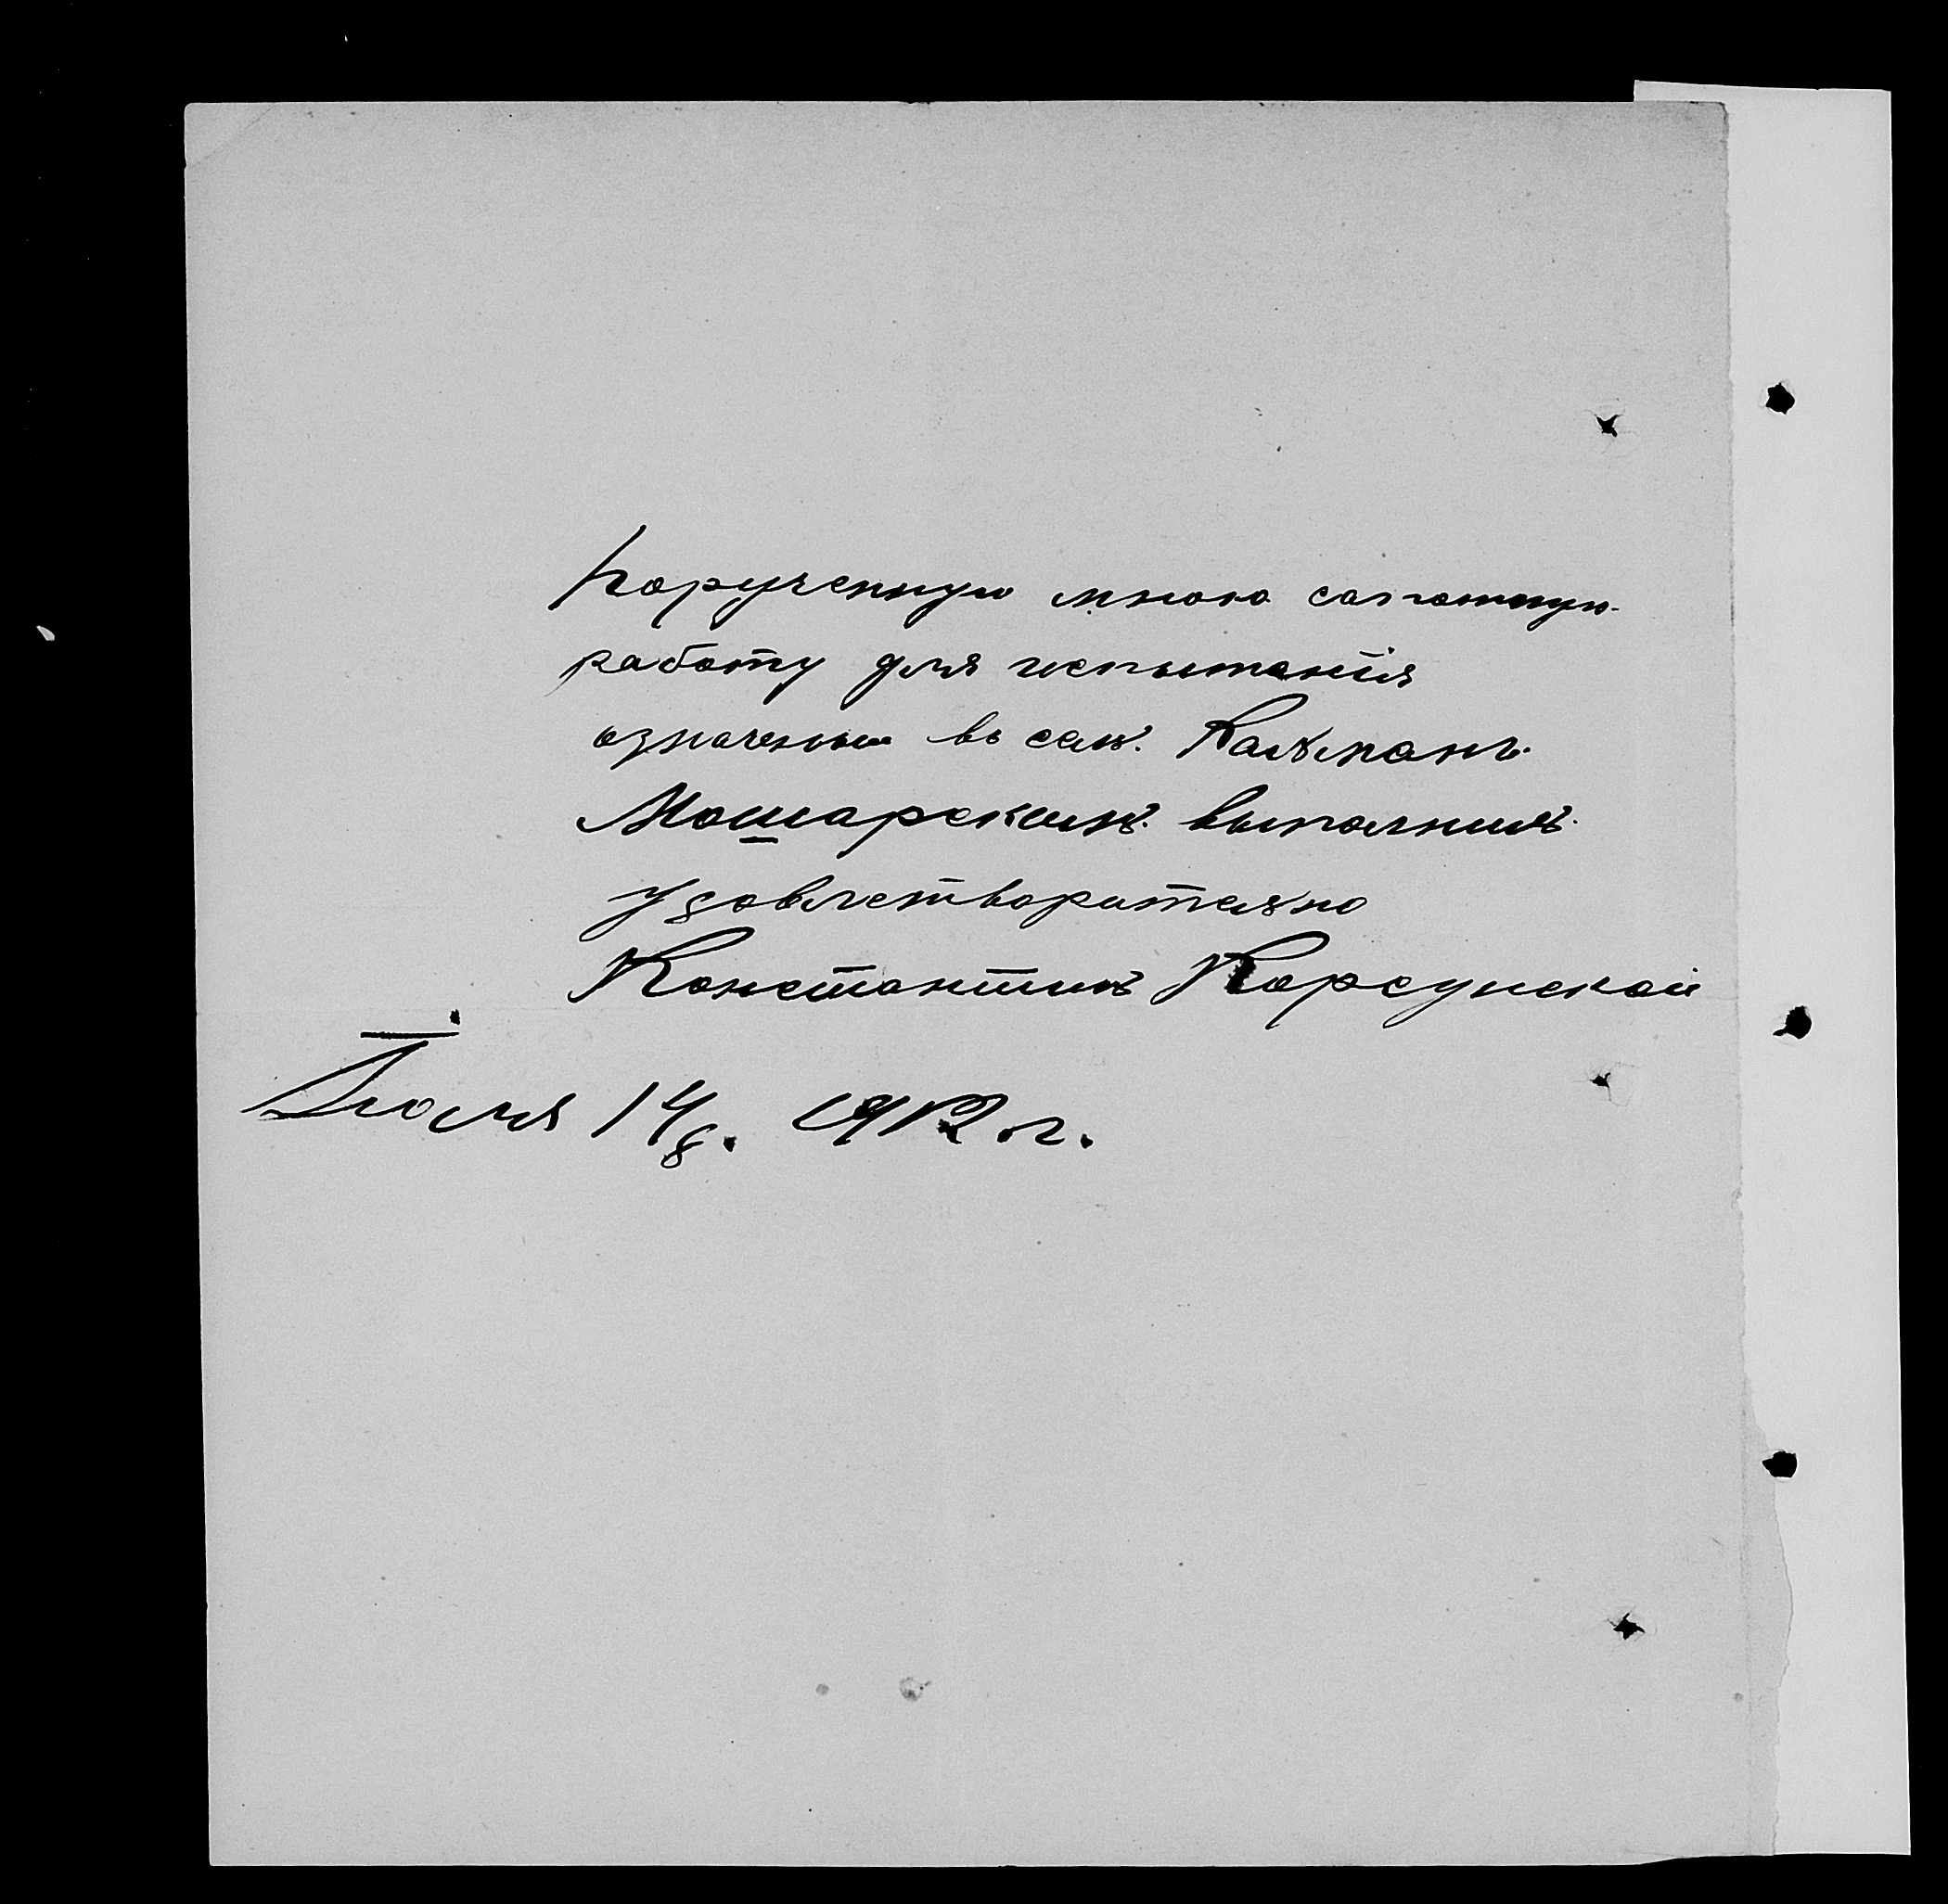 Порученную мною сапожную
работу для испытанія
означеным въ сем. Калманъ
Мошарскимъ выполнилъ
удовлетворительно
Константинъ Корсунской
Іюля 14 д. 1912 г.